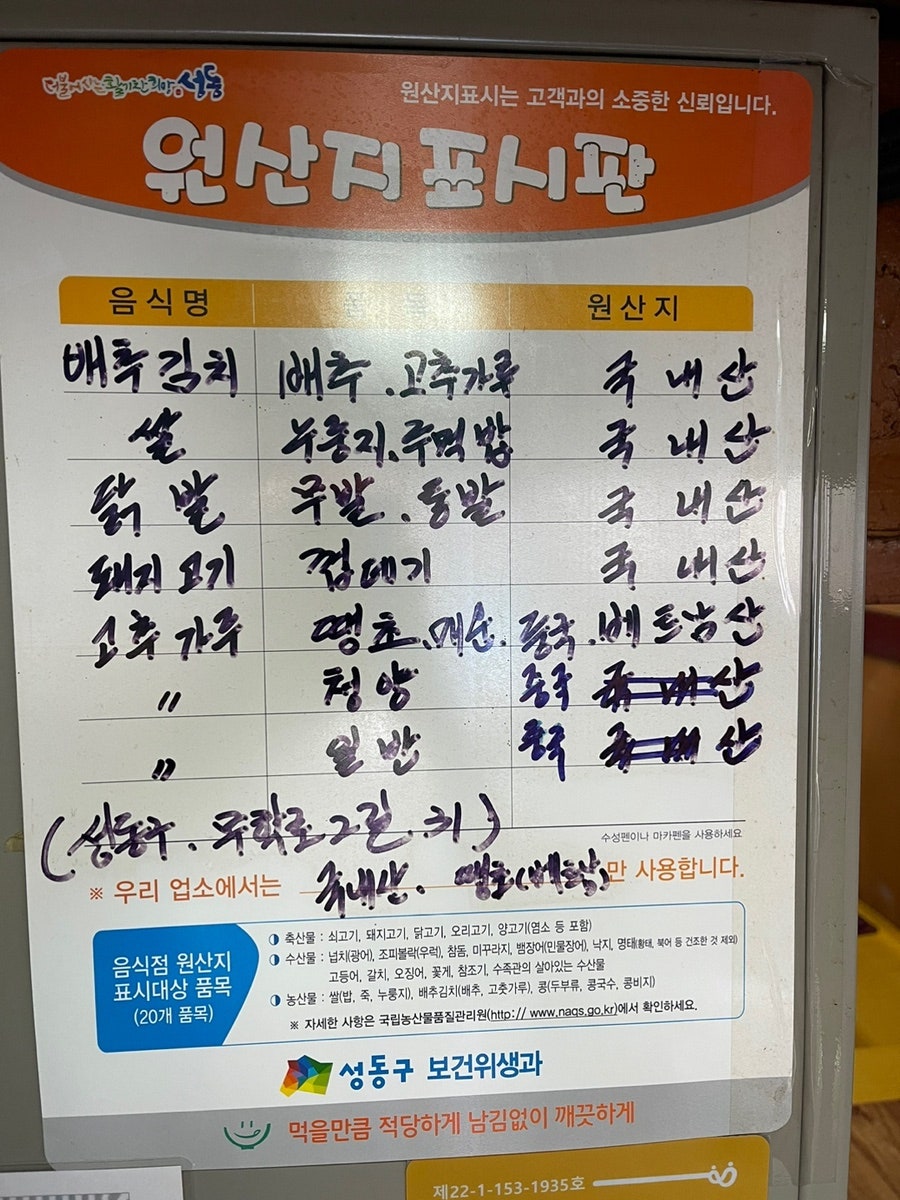 더불어사는 활기찬 희망 성동
원산지표시는 고객과의 소중한 신뢰입니다.
원산지표시판
음식명 품목 원산지
배추김치 배추.고추가루 국내산
쌀 누룽지.주먹밥 국내산
닭발 무발.통발 국내산
돼지고기 껍데기 국내산
고추가루 땡초.매운.중국.베트남산
〃 청양 중국 국내산
〃 일반 중국 국내산
(성동구.무학로2길.31)
수성펜이나 마카펜을 사용하세요
※ 우리 업소에서는 국내산. 땡초(베트남)만 사용합니다.
음식점 원산지
표시대상 품목
(20개 품목)
축산물 : 쇠고기, 돼지고기, 닭고기, 오리고기, 양고기(염소 등 포함)
수산물 : 넙치(광어), 조피볼락(우럭), 참돔, 미꾸라지, 뱀장어(민물장어), 낙지, 명태(황태, 북어 등 건조한 것 제외)
고등어, 갈치, 오징어, 꽃게, 참조기, 수족관의 살아있는 수산물
농산물 : 쌀(밥, 죽, 누룽지), 배추김치(배추, 고춧가루), 콩(두부류, 콩국수, 콩비지)
※ 자세한 사항은 국립농산물품질관리원(http:// www.naqs.go.kr)에서 확인하세요.
성동구 보건위생과
먹을만큼 적당하게 남김없이 깨끗하게
제22-1-153-1935호